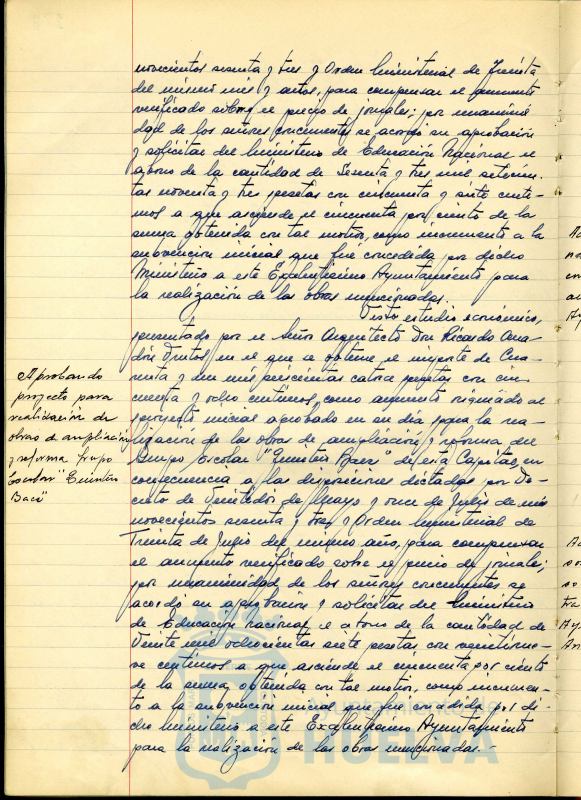 novecientos sesenta y tres y Orden Ministerial de Treinta
del mismo mes y años, para compensar el aumento
verificado sobre el precio de jornales; por unanimi
dad de los señores concurrentes se acordó su aprobación
y solicitar del Ministerio de Educación Nacional el
abono de la cantidad de Sesenta y tres mil setecien
tas noventa y tres pesetas con cincuenta y siete cénti-
mos a que asciende el cincuenta por ciento de la
suma obtenida con tal motivo, como incremento a la
subvención inicial que fué concedida por dicho
Ministerio a este Excelentísimo Ayuntamiento para
la realización de las obras mencionadas.
Visto estudio económico,
presentado por el Señor Arquitecto Don Ricardo Ana-
dón Frutos en el que se obtiene el importe de Cua-
renta y un mil seiscientas catorce pesetas con cin
cuenta y ocho céntimos, como aumento originado al
proyecto inicial aprobado en su día para la rea-
lización de las obras de ampliación y reforma del
Grupo Escolar "Quintero Baez" de esta Capital, en
consecuencia a las disposiciones dictadas por De-
creto de Veintidos de Mayo y once de Julio de mil
novecientos sesenta y tres y Orden Ministerial de
Treinta de Julio del mismo año, para compensar
el aumento verificado sobre el precio de jornales;
por unanimidad de los señores concurrentes se
acordó su aprobación y solicitar del Ministerio
de Educación nacional el abono de la cantidad de
Veinte mil ochocientas siete pesetas con veintinue-
ve céntimos a que asciende el cincuenta por ciento
de la suma obtenida con tal motivo, como incremen-
to a la subvención inicial que fué concedida por di-
cho Ministerio a este Excelentísimo Ayuntamiento
para la realización de las obras mencionadas.-
Aprobando
proyecto para
realización de
obras de ampliación
y reforma Grupo
Escolar "Quintero
Baez"
HUELVA